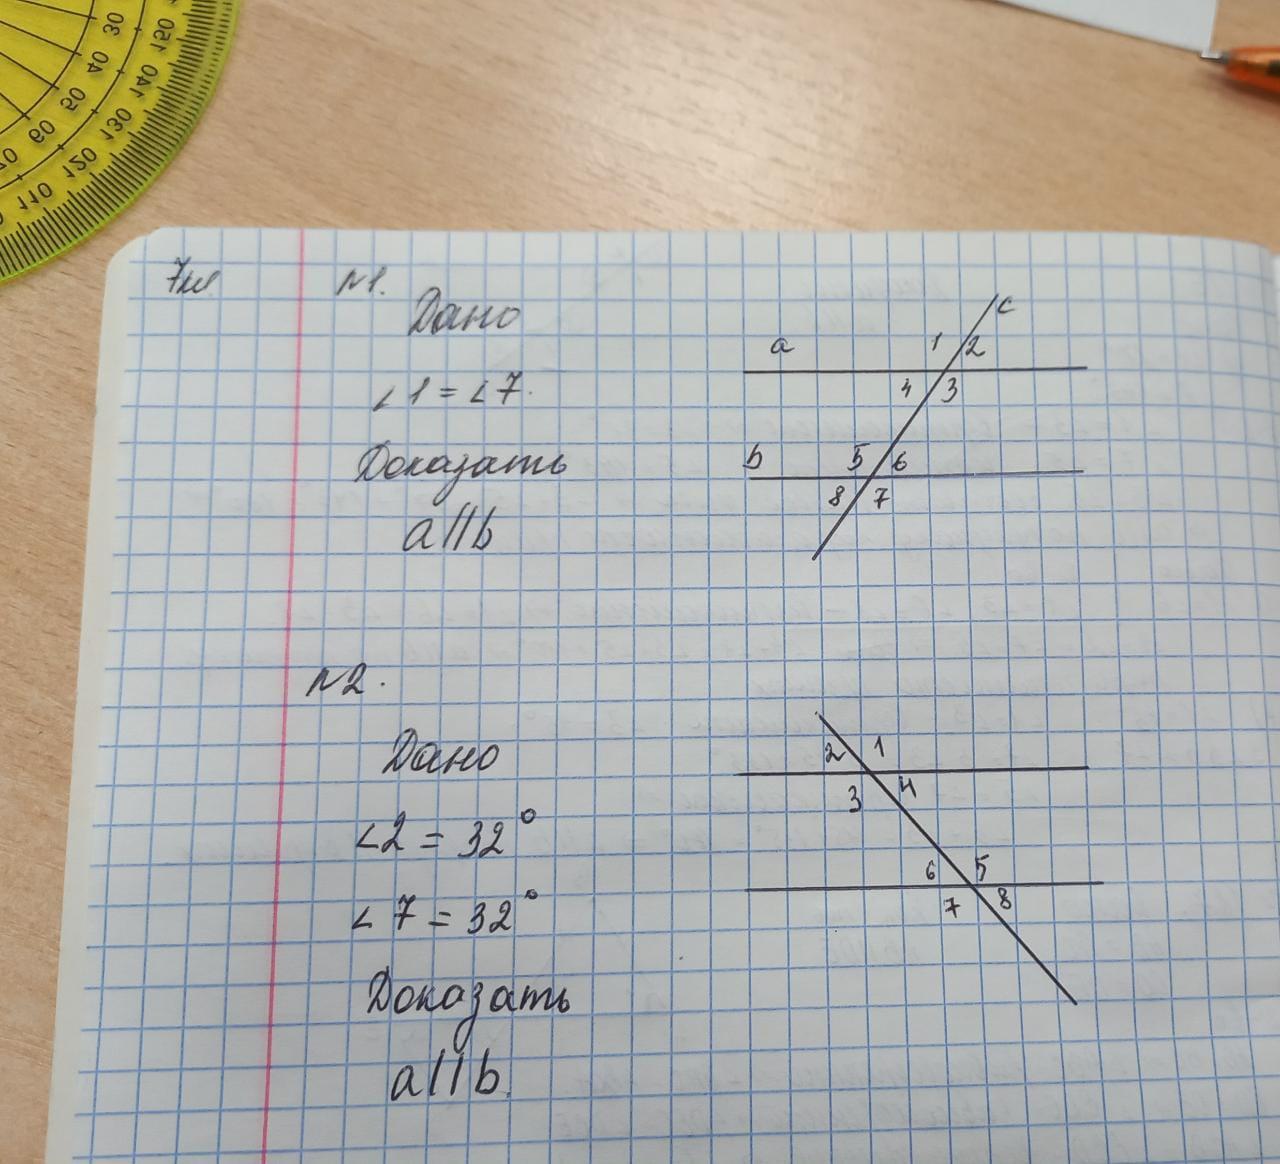 30
40
50
60
70
150
140
130
120
110
7кл
N1.
Дано
∠1 = ∠7.
Доказать
a||b
c
a
1
2
4
3
b
5
6
8
7
N2.
Дано
∠2 = 32°
∠7 = 32°
Доказать
a||b.
2
1
3
4
6
5
7
8